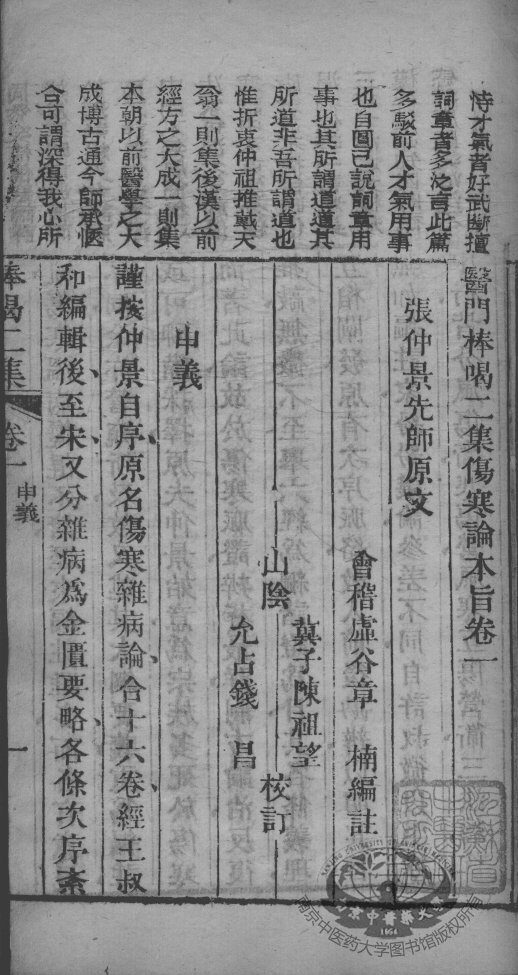 恃才氣者好武斷擅
詞章者多泛言此篇
多駁前人才氣用事
也自圓己說詞章用
事也其所謂道道其
所道非吾所謂道也
惟折衷仲祖推戴天
翁一則集後漢以前
經方之大成一則集
本朝以前醫學之大
成博古通今師承愜
合可謂深得我心所
醫門棒喝二集傷寒論本旨卷一
張仲景先師原文
會稽虛谷章 楠編註
山陰
蓂子陳祖望
允占錢 昌
校訂
申義
謹按仲景自序原名傷寒雜病論合十六卷經王叔
和編輯後至宋又分雜病爲金匱要略各條次序紊
棒喝二集 卷一 申義 一
南京中医药大学图书馆版权所有
1954